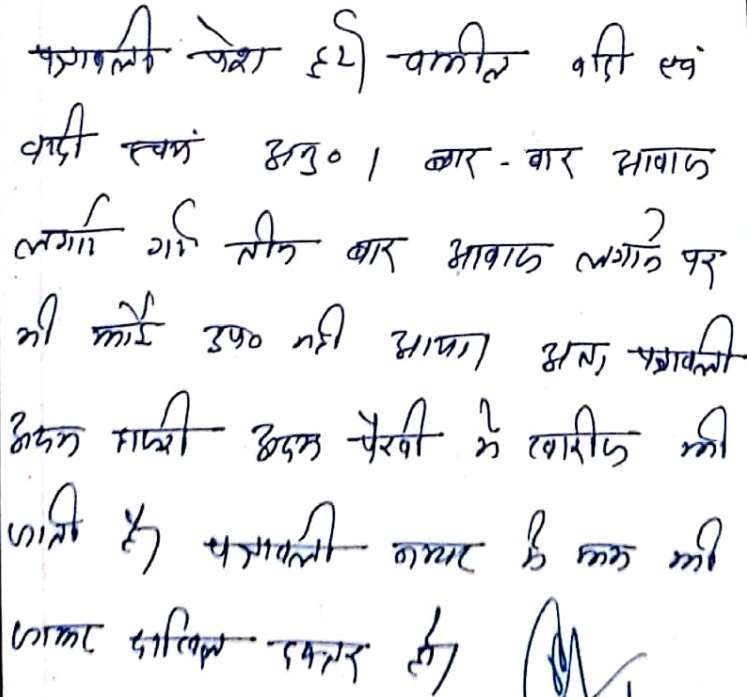 पत्रावली पेश हुई। वकील वादी एवं
वादी स्वयं अनु० । बार - बार आवाज
लगाई गई तीन बार आवाज लगाने पर
भी कोई उप० नही आया। अतः पत्रावली
अदम हाजरी अदम पैरवी मे खारीज की
जाती है। पत्रावली नम्बर से कम की
जाकर दाखिल दफ्तर हो।